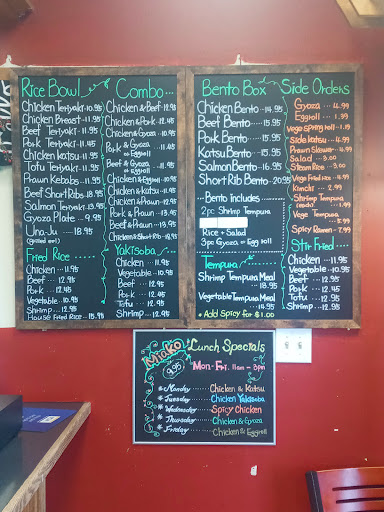 Rice Bowl
Chicken Teriyaki 10.95
Chicken Breast 11.95
Beef Teriyaki 11.95
Pork Teriyaki 11.95
Chicken Katsu 11.95
Tofu Teriyaki 11.95
Prawn Kebabs
Beef Short Ribs
Salmon Teriyaki
Gyoza Plate 9.95
Una-Ju
Fried Rice
Chicken 11.95
Beef
Pork 12.45
Vegetable 10.95
Shrimp
House Fried Rice
Combo
Chicken & Beef
Chicken & Pork
Chicken & Gyoza
Pork & Gyoza
or Eggroll
Beef & Gyoza
or Eggroll
Chicken & Eggroll
Chicken & Katsu
Chicken & Prawn
Pork & Prawn
Beef & Prawn
Chicken & Short Rib
Yakisoba
Chicken 11.95
Vegetable 10.95
Beef 12.45
Pork 12.45
Tofu 11.95
Shrimp
Bento Box
Chicken Bento 14.95
Beef Bento 15.95
Pork Bento 15.95
Katsu Bento 15.95
Salmon Bento
Short Rib Bento
Bento Includes
2pc Shrimp Tempura
Rice + Salad
3pc Gyoza or Egg roll
Tempura
Shrimp Tempura Meal
Vegetable Tempura Meal
* Add Spicy for $1.00
Side Orders
Gyoza 4.99
Eggroll 1.99
Vege Spring roll
Side Katsu
Prawn Skewer
Salad 3.00
Steam Rice
Vege Fried Rice
Kimchi
Shrimp Tempura
Vege Tempura
Spicy Ramen
Stir Fried
Chicken 11.95
Vegetable 10.95
Beef 12.45
Pork 12.45
Tofu 11.95
Shrimp
Miako
9.95
Lunch Specials
Mon-Fri. 11am - 3pm
* Monday Chicken & Katsu
* Tuesday Chicken Yakisoba
* Wednesday Spicy Chicken
* Thursday Chicken & Gyoza
* Friday Chicken & Eggroll